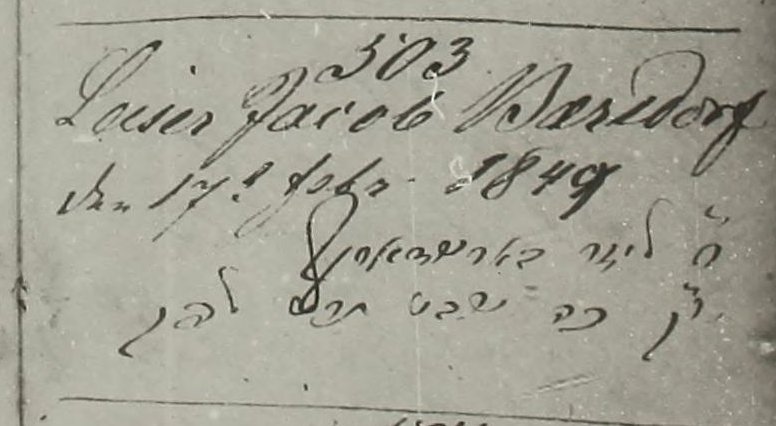 503
Leiser Jacob Bærsdorf
den 17e febr. 1849
ר' ליזר בארסדארף
ש"ק כה שבט תרט לפק